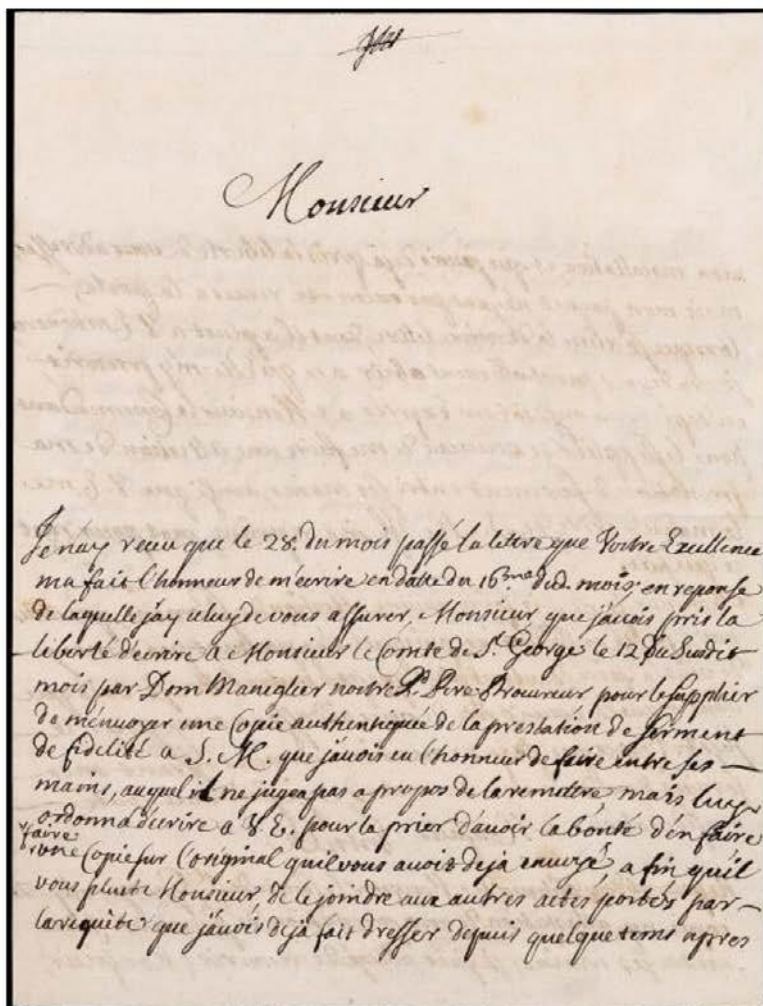 Monsieur
Je n'ay receu que le 28. du mois passé la lettre que Vostre Excellence
ma fait l'honneur de m'écrire en datte du 16me dud. mois; en reponse
de laquelle j'ay celuy de vous assurer, Monsieur que j'avois pris la
liberté d'ecrire a Monsieur le Comte de St. George le 12 du Susdit
mois par Dom Maniglier nostre Rd. Pere Procureur pour le Supplier
de m'envoyer une Copie authentique de la prestation de Serment
de fidelité a S. M. que j'avois eu l'honneur de faire entre ses —
mains, auquel il ne jugea pas a propos de la remettre, mais luy
ordonna d'ecrire a V. E. pour la prier d'avoir la bonté d'en faire
faire
une Copie sur l'original qu'il vous avoit deja envoyé, a fin qu'il
vous pluste Monsieur, de le joindre aux autres actes portés par —
la requête que j'avois deja fait dresser depuis quelque tems apres